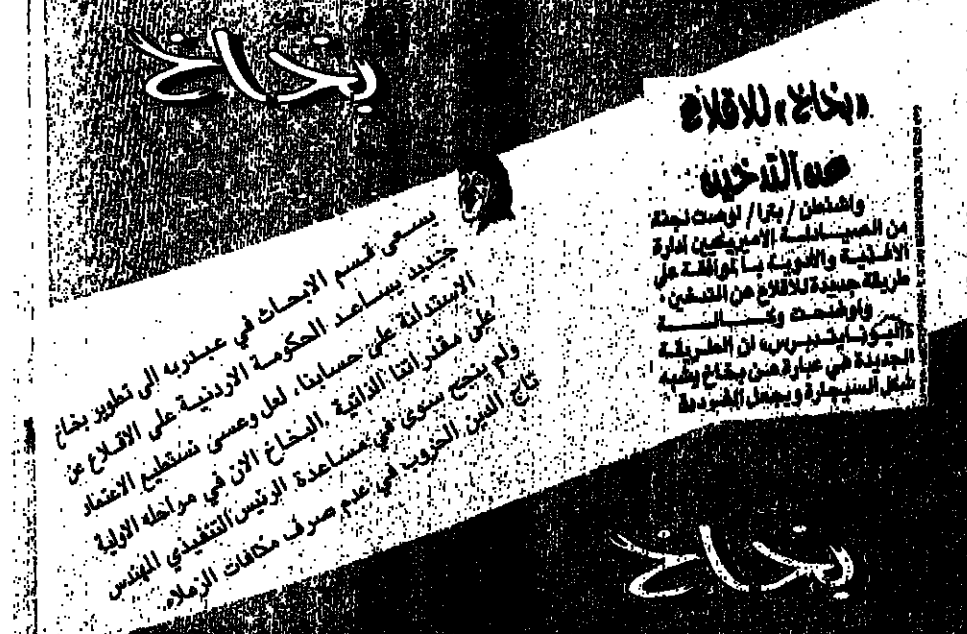 بخاخ
«بخاخ» للاقلاع
عن التدخين
واشنطن / بترا / اوصت لجنة
من الصيادلة الامريكيين ادارة
الاغذية والادوية بالموافقة على
طريقة جديدة للاقلاع عن التدخين.
واوضحت وكالة
«اليونايتدبرس» ان الطريقة
الجديدة هي عبارة عن بخاخ يشبه
شكل السيجارة ويجعل
يسعى قسم الابحاث في عبدربه الى تطوير بخاخ
جديد يساعد الحكومة الاردنية على الاقلاع عن
الاستدانة على حسابنا، لعل وعسى نستطيع الاعتماد
على مقدراتنا الذاتية. البخاخ الان في مراحله الاولية
ولم ينجح سوى في مساعدة الرئيس التنفيذي المهندس
تاج الدين الحروب في عدم صرف مكافات الزملاء.
بخاخ